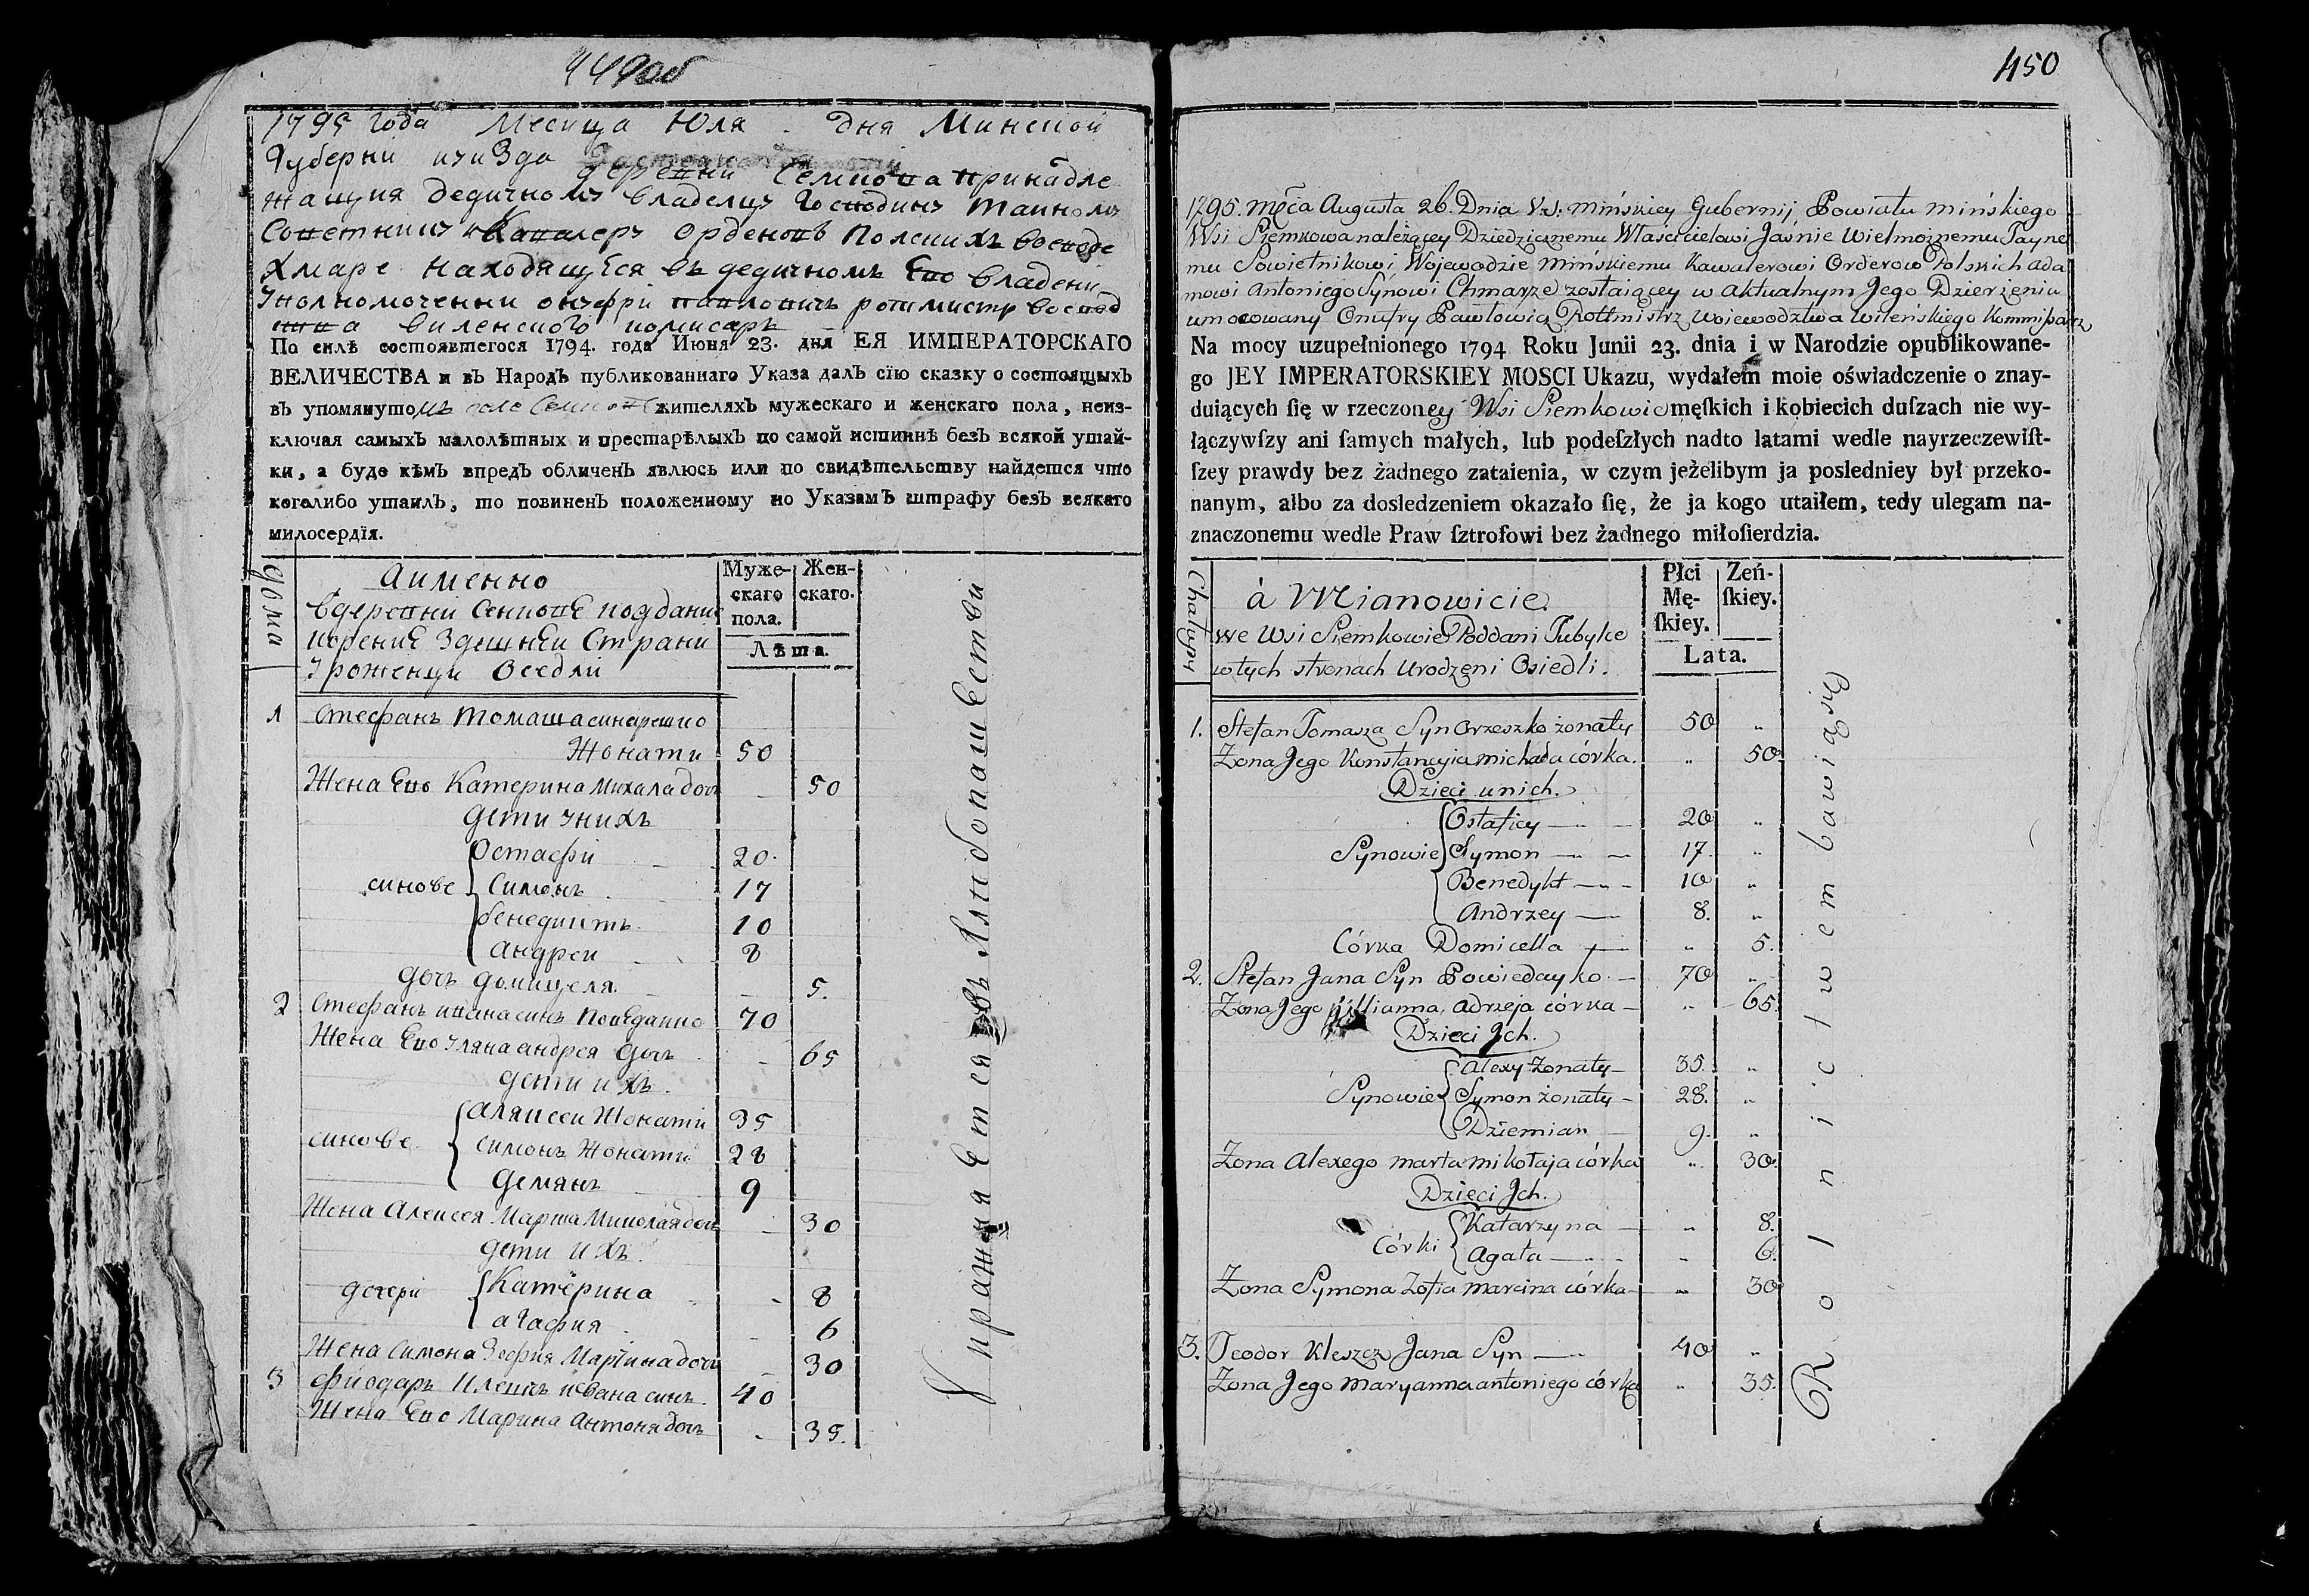 449об
1795 года Месица Юля - дня Минской
Губерни изиЗда
деревни Семкова принадле
жащия дедичному владелцу Господину таиному
Советнику и Кавалеру орденовъ Полскихъ воеводе
Хмаре находящуся въ дедичномъ Его владени
Уполномоченни онуфри павловичъ ротмистръ воевод
ства виленского комисаръ
По силѣ состоявшегося 1794. года Июня 23. дня ЕЯ ИМПЕРАТОРСКАГО
ВЕЛИЧЕСТВА и въ Народѣ публикованнаго Указа далъ сїю сказку о состоящыхъ
въ упомянутомъ селе Семкове жителяхъ мужескаго и женскаго пола, неиз-
ключая самыхъ малолѣтныхъ и престарѣлыхъ по самой истиннѣ безъ всякой утай-
ки, а буде кѣмъ впредъ обличенъ явлюсь или по свидѣтельству найдется что
коголибо утаилъ, то повиненъ положенному по Указамъ штрафу безъ всякаго
милосердїя.
дома
Аименно
вдеревни Семкове поддание
корение Здешнеи Страни
Уроженци Оседли
Муже-
скаго
пола.
Жен-
скаго.
Лѣта.
1 Стефанъ томаша синъ орешко
Жонати 50
Жена Его Катерина Михала дочъ - 50
дети унихъ
синове Остафи 20.
Симонъ 17
бенедиктъ 10
андреи 8
дочъ домицеля - 5.
2 Стефанъ ивана синъ Поведаико 70
Жена Его Уляна андрея дочъ - 65
дети ихъ
синове аляксеи Жонати 35
симонъ Жонати 28
Демянъ 9
Жена Алексея Марта Миколая дочъ - 30
дети ихъ
дочери Катерина - 8
агафия - 6
Жена Симона Зофия Мартина дочъ - 30
3 фиодаръ Клещъ ивана синъ 40
Жена Его Марина Антоня дочъ - 35.
Упражняется въ хлибопашестви
450
1795. Mca Augusta 26. Dnia V.S. Mińskiey Gubernij Powiatu Mińskiego
Wsi Siemkowa należącey Dziedzicznemu Właścicielowi Jaśnie Wielmożnemu Tayne
mu Sowietnikowi Wojewodzie Mińskiemu Kawalerowi Orderow Polskich Ada
mowi Antoniego Synowi Chmarze zostaiącey w aktualnym Jego Dzierżeniu
umocowany Onufry Pawłowicz Rottmistrz Woiewodztwa Wileńskiego Kommisarz
Na mocy uzupełnionego 1794 Roku Junii 23. dnia i w Narodzie opublikowane-
go JEY IMPERATORSKIEY MOSCI Ukazu, wydałem moie oświadczenie o znay-
duiących ſię w rzeczoney Wsi Siemkowie męſkich i kobiecich duſzach nie wy-
łączywſzy ani ſamych małych, lub podeſzłych nadto latami wedle nayrzeczewiſt-
ſzey prawdy bez żadnego zataienia, w czym jeżelibym ja posledniey był przeko-
nanym, albo za dosledzeniem okazało ſię, że ja kogo utaiłem, tedy ulegam na-
znaczonemu wedle Praw ſztrofowi bez żadnego miłoſierdzia.
Chałupy
à Mianowicie.
we Wsi Siemkowie Poddani Tubylce
w tych stronach Urodzeni Osiedli.
Płci
Mę-
ſkiey.
Zeń-
ſkiey.
Lata.
1. Stefan Tomasza Syn Orzeszko żonaty 50 "
Zona Jego Konstancyia Michała córka. " 50.
Dzieci unich.
Synowie Ostaficy 20 "
Symon 17. "
Benedykt 10 "
Andrzey 8. "
Córka Domicella " 5.
2. Stefan Jana Syn Powiedayko 70 "
Zona Jego Julianna Adrzeja córka " 65.
Dzieci Jch.
Synowie Alexy żonaty 35. "
Symon żonaty 28. "
Dziemian 9. "
Zona Alexego Marta Mikołaja córka " 30.
Dzieci Jch.
Córki Katarzyna " 8.
Agata " 6.
Zona Symona Zofia Marcina córka " 30
3. Teodor Kleszcz Jana Syn 40 "
Zona Jego Maryanna Antoniego córka " 35.
Rolnictwem bawią się